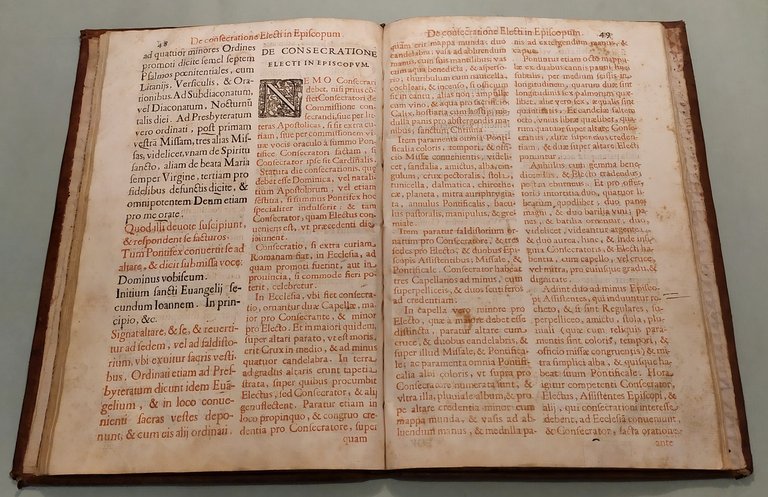 48
De consecratione Electi in Episcopum.
ad quatuor minores Ordines
promoti dicite semel septem
Psalmos pœnitentiales, cum
Litanijs, Versiculis, & Ora-
tionibus. Ad Subdiaconatum,
vel Diaconatum, Nocturnũ
talis diei. Ad Presbyteratum
vero ordinati, post primam
vestrã Missam, tres alias Mis-
sas, videlicet, vnam de Spiritu
sancto, aliam de beata Maria
semper Virgine, tertiam pro
fidelibus defunctis dicite, &
omnipotentem Deum etiam
pro me orate.
Quod illi deuote suscipiunt,
& respondent se facturos.
Tum Pontifex conuertit se ad
altare, & dicit submissa voce:
Dominus vobiscum.
Initium sancti Euangelij se-
cundum Ioannem. In prin-
cipio, &c.
Signat altare, & se, & reuerti-
tur ad sedem, vel ad faldisto-
rium, vbi exuitur sacris vesti-
bus. Ordinati etiam ad Pres-
byteratum dicunt idem Euã-
gelium, & in loco conue-
nienti sacras vestes depo-
nunt, & cum eis alij ordinati.
DE CONSECRATIONE
ELECTI IN EPISCOPVM.
NEMO Consecrari
debet, nisi prius cõ-
stet Consecratori de
Commissione con-
secrandi, siue per lit-
teras Apostolicas, si sit extra cu-
riam, siue per commissionem vi-
uæ vocis oraculo à summo Pon-
tifice Consecratori factam, si
Consecrator ipse sit Cardinalis.
Statuta die consecrationis, quæ
debet esse Dominica, vel natali-
tium Apostolorum, vel etiam
festiua, si summus Pontifex hoc
specialiter indulserit; & tam
Consecrator, quam Electus con-
ueniens est, vt præcedenti die
ieiunent.
Consecratio, si extra curiam
Romanam fiat, in Ecclesia, ad
quam promoti fuerint, aut in
prouincia, si commode fieri po-
terit, celebretur.
In Ecclesia, vbi fiet consecra-
tio, ornantur duæ Capellæ, ma-
ior pro Consecrante, & minor
pro Electo. Et in maiori quidem,
super altari parato, vt est moris,
erit Crux in medio, & ad minus
quatuor candelabra. In terra
ad gradus altaris erunt tapetia
strata, super quibus procumbit
Electus, sed Consecrator, & alij
genuflectent. Paratur etiam in
loco propinquo, & congruo cre-
dentia pro Consecratore, super
quam
De consecratione Electi in Episcopum.
49
quam erit mappa munda; duo
candelabra, vasa ad abluendas
manus, cum suis mantilibus; vas
cum aqua benedicta, & aspersio-
rio; thuribulum cum nauicella,
cochleari, & incenso, si officium
fiet in cantu, alias non; ampullæ
cum vino, & aqua pro sacrificio;
Calix, hostiaria cum hostijs, me-
dulla panis pro abstergendis ma-
nibus; sanctum Chrisma.
Item paramenta omnia Ponti-
ficalia coloris, tempori, & offi-
cio Missæ conuenientis, videli-
cet, sandalia, amictus, alba, cin-
gulum, crux pectoralis, stola,
tunicella, dalmatica, chirothe-
cæ, planeta, mitra auriphrygia-
ta, annulus Pontificalis, bacu-
lus pastoralis, manipulus, & gre-
miale.
Item paratur faldistorium or-
natum pro Consecratore, & tres
sedes pro Electo, & duobus Epis-
copis Assistentibus, Missale, &
Pontificale. Consecrator habeat
tres Capellanos ad minus, cum
superpelliceis, & duos scutiferos
ad credentiam.
In capella vero minore pro
Electo, quæ à maiore debet esse
distincta, paratur altare cum
cruce, & duobus candelabris, &
super illud Missale, & Pontifica-
le; ac paramenta omnia Pontifi-
calia albi coloris, vt supra pro
Consecratore numerata sunt, &
vltra illa, pluuiale album, & pro-
pe altare credentia minor, cum
mappa munda, & vasis ad ab-
luendum manus, & medulla pa-
nis ad extergendum manus, &
caput.
Ponuntur etiam octo mappulæ
de
longitudinis sex palmorum pro
qualibet
quatuor aliæ sint
longitudinis
vero sex, æquales sint
Et candelæ saltem
octo, vnius libræ quælibet, qua-
rum quatuor super altare Con-
secratoris, & quatuor super alta-
re Electi.
Anulus cum gemma bene-
dicendus, & Electo tradendus;
pecten etiam. Et pro offer-
torio intortitia duo, quatuor li-
brarum quodlibet, duo panes
magni, & duo barilia vini; pa-
nes, & barilia ornentur, duo,
videlicet, videantur argentei,
& duo aurei, hinc, & inde in-
signia Consecratoris, & Electi ha-
bentia, cum capello, vel cruce,
vel mitra, pro cuiusque gradu, &
dignitate.
Adsint duo ad minus Episco-
pi Assistentes, qui induuntur ro-
chetto, &, si sint Regulares, su-
perpelliceo, amictu, stola, plu-
uiali (quæ cum reliquis para-
mentis sint coloris, tempori, &
officio missæ congruentis) & mi-
tra simplici alba, & quisque ha-
beat suum Pontificale. Hora
igitur competenti Consecrator,
Electus, Assistentes Episcopi, &
alij, qui consecrationi interesse
debent, ad Ecclesiam conueniunt,
& Consecrator, facta oratione
ante